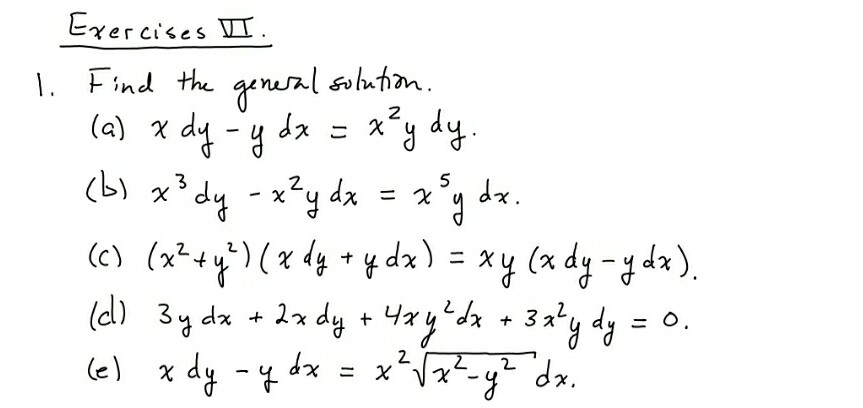 Exercises VI.
1. Find the general solution.
(a) x dy - y dx = x²y dy.
(b) x³ dy - x²y dx = x⁵y dx.
(c) (x²+y²)(x dy + y dx) = xy (x dy - y dx).
(d) 3y dx + 2x dy + 4xy² dx + 3x²y dy = 0.
(e) x dy - y dx = x²√(x²-y²) dx.